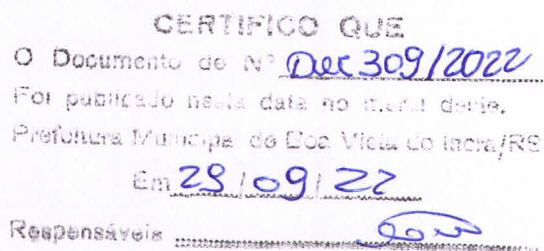 CERTIFICO QUE
O Documento de Nº Dec 309/2022
Foi publicado nesta data no mural desta.
Prefeitura Municipal de Boa Vista do Incra/RS
Em 29/09/22
Responsáveis